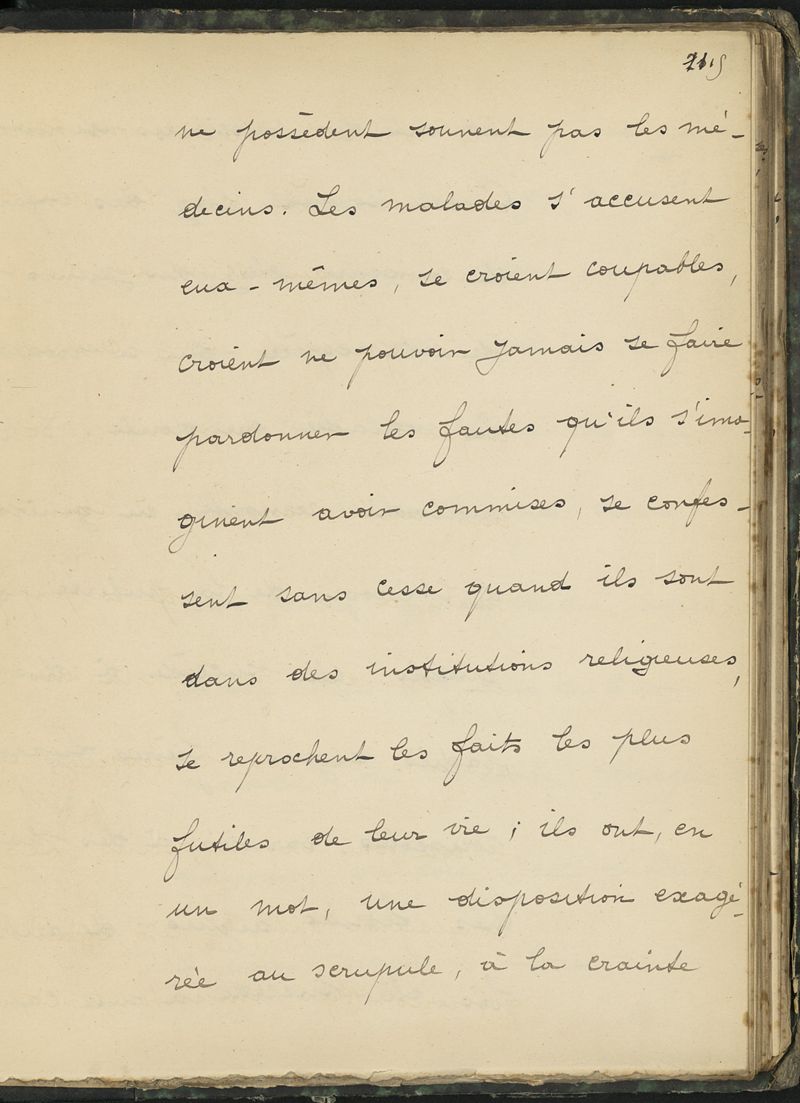 ne possèdent souvent pas les mé-
decins. Les malades s'accusent
eux-mêmes, se croient coupables,
croient ne pouvoir jamais se faire
pardonner les fautes qu'ils s'ima-
ginent avoir commises, se confes-
sent sans cesse quand ils sont
dans des institutions religieuses,
se reprochent les faits les plus
futiles de leur vie ; ils ont, en
un mot, une disposition exagé-
rée au scrupule, à la crainte